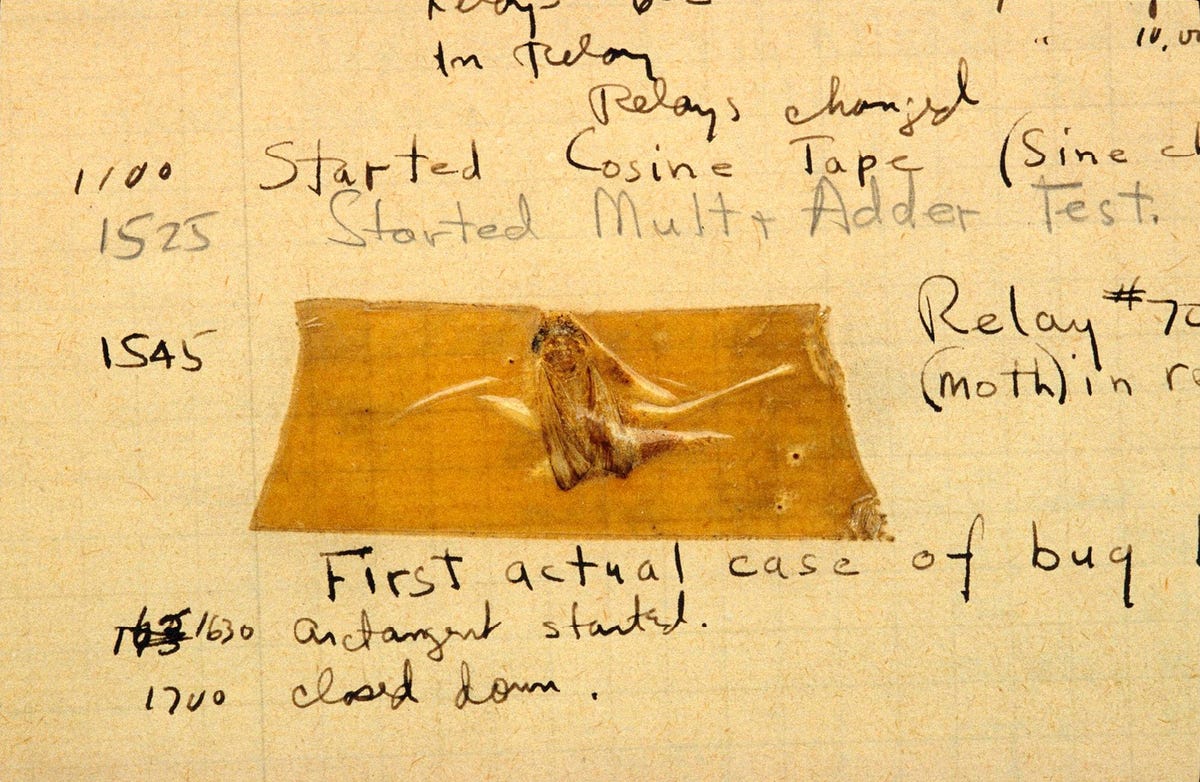 In Relay
Relays changed
1100 Started Cosine Tape (Sine
1525 Started Mult+ Adder Test.
Relay #70
1545
(moth) in
First actual case of bug
1630 arctangent started.
1700 closed down.